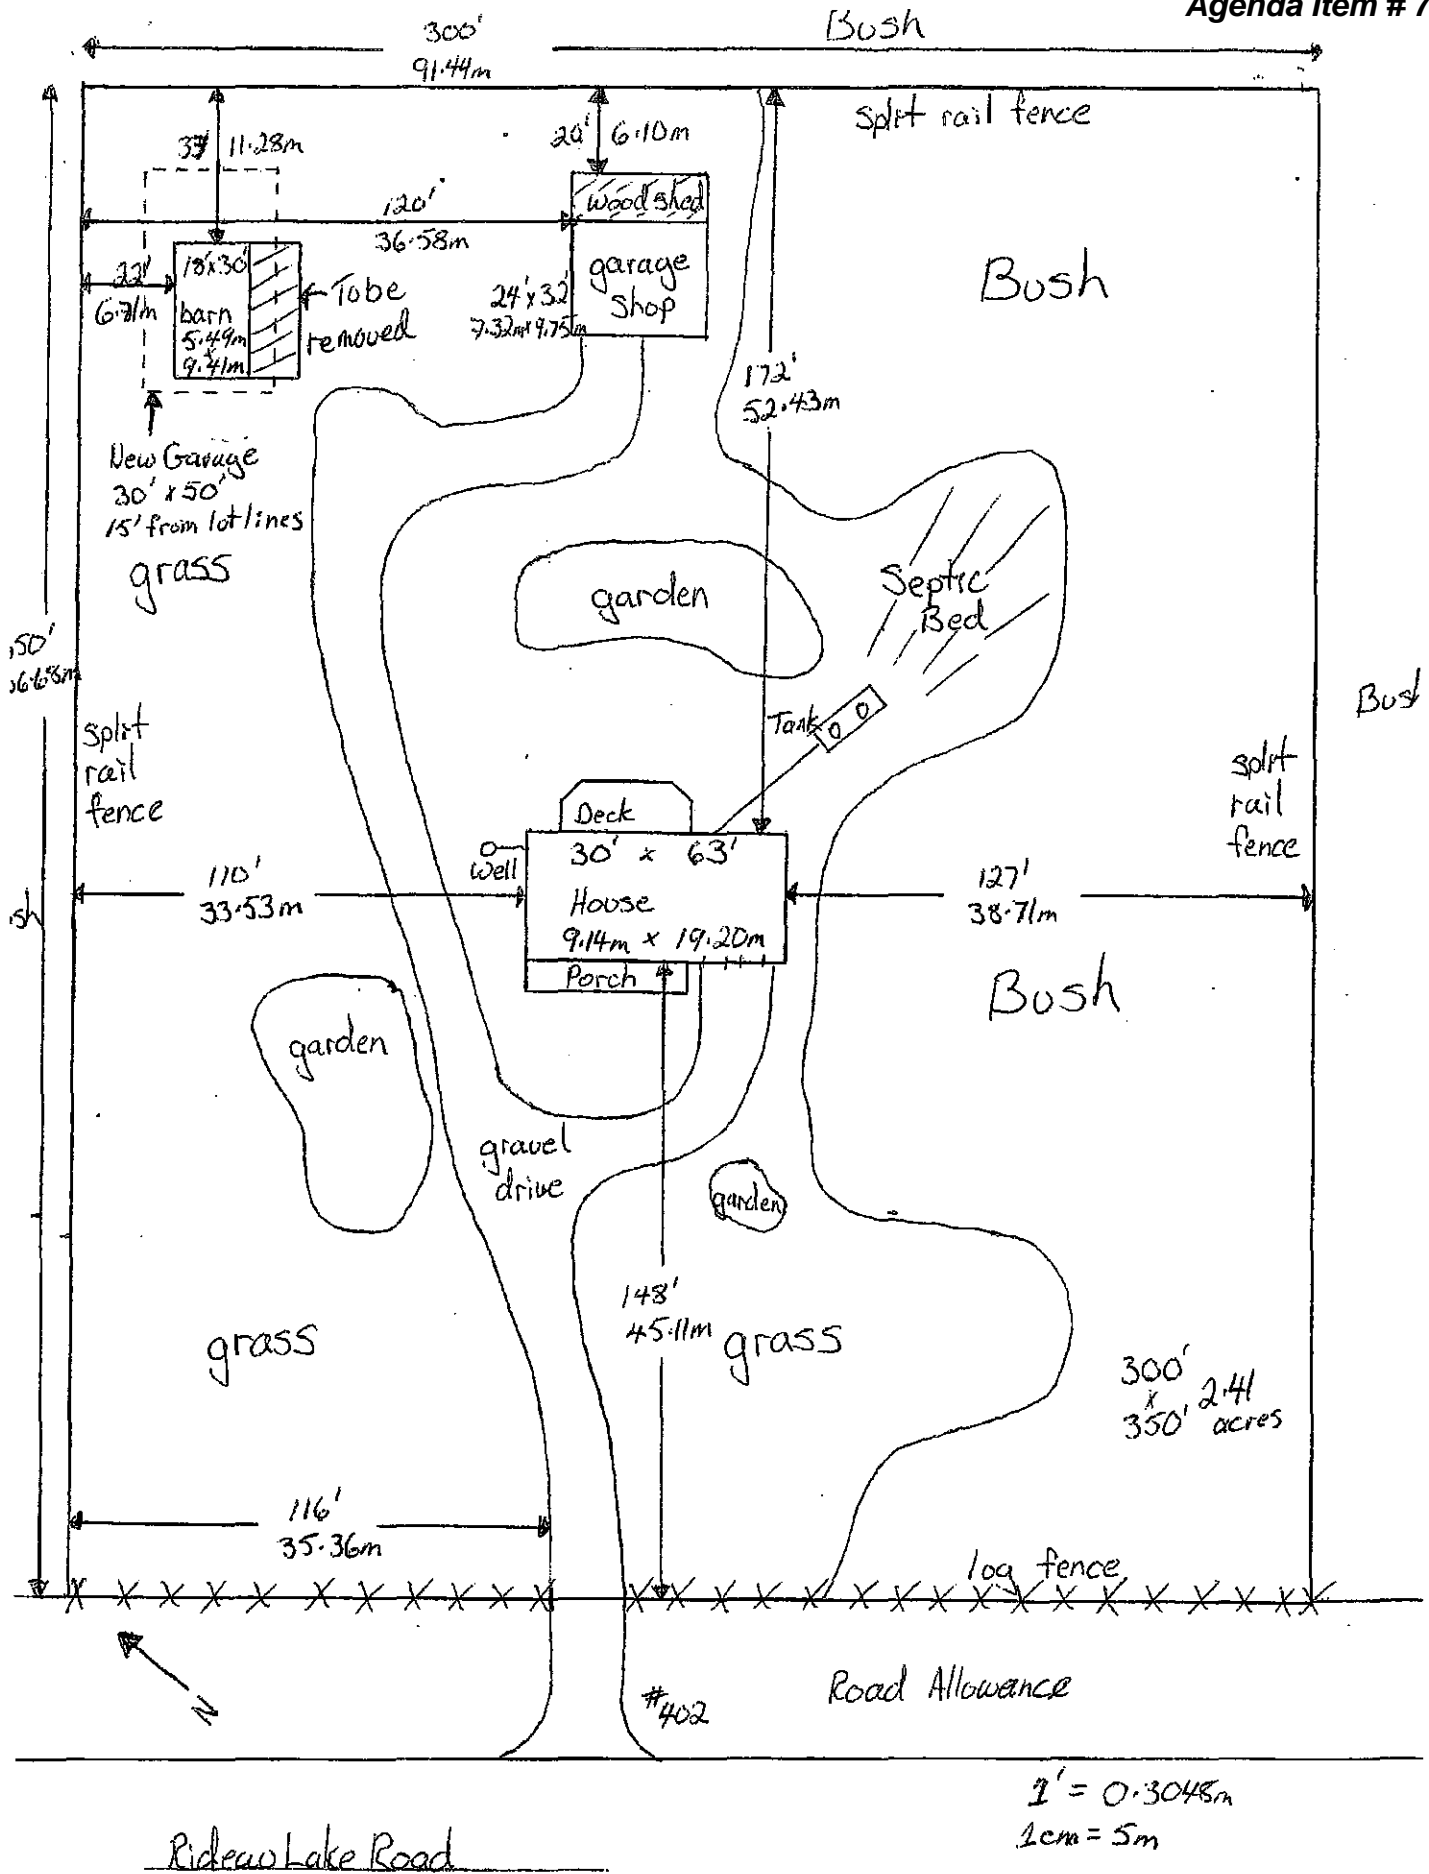 Agenda Item # 7
Bush
300'
91.44m
split rail fence
11.28m
20' 6.10m
wood shed
120'
36.58m
garage
shop
24' x 32'
7.32m x 9.75m
22'
6.71m
18'x30'
barn
5.49m
x
9.41m
To be
removed
Bush
172'
52.43m
New Garage
30' x 50'
15' from lot lines
grass
garden
Septic
Bed
50'
Tank
split
rail
fence
split
rail
fence
Deck
Well
30' x 63'
House
9.14m x 19.20m
Porch
110'
33.53m
127'
38.71m
sh
Bush
garden
gravel
drive
garden
148'
45.11m
grass
grass
300'
x
350'
2.41
acres
116'
35.36m
log fence
N
#402
Road Allowance
1' = 0.3048m
1cm = 5m
Rideau Lake Road